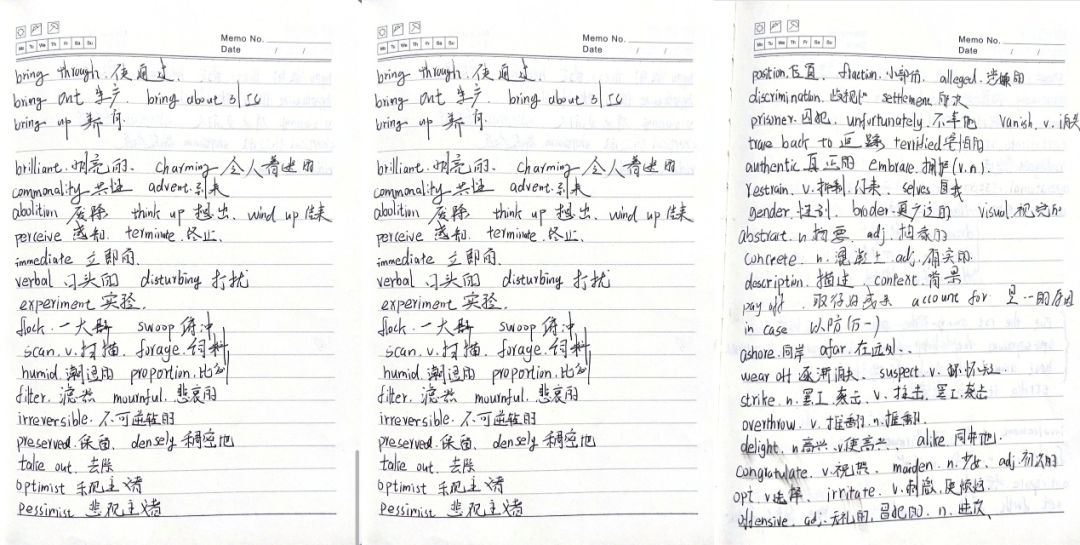 Mo Tu We Th Fr Sa Su
Memo No.
Date / /
bring through. 使通过.
bring out 生产. bring about 引起
bring up 养育
brilliant. 明亮的. charming 令人着迷的
commonality 共性 advent. 到来
abolition 废除 think up 想出. wind up 结束
perceive 感知. terminate. 终止.
immediate 立即的.
verbal 口头的 disturbing 打扰
experiment 实验.
flock. 一大群 swoop 俯冲
scan. v. 扫描. forage. 饲料
humid. 潮湿的 proportion. 比例
filter. 滤 mournful. 悲哀的
irreversible. 不可逆转的
preserved. 保留. densely 稠密地
take out. 去除
optimist 乐观主义者
pessimist 悲观主义者
Mo Tu We Th Fr Sa Su
Memo No.
Date / /
bring through. 使通过.
bring out 生产. bring about 引起
bring up 养育
brilliant. 明亮的. charming 令人着迷的
commonality 共性 advent. 到来
abolition 废除 think up 想出. wind up 结束
perceive 感知. terminate. 终止.
immediate 立即的.
verbal 口头的 disturbing 打扰
experiment 实验.
flock. 一大群 swoop 俯冲
scan. v. 扫描. forage. 饲料
humid. 潮湿的 proportion. 比例
filter. 滤 mournful. 悲哀的
irreversible. 不可逆转的
preserved. 保留. densely 稠密地
take out. 去除
optimist 乐观主义者
pessimist 悲观主义者
Mo Tu We Th Fr Sa Su
Memo No.
Date / /
position. 位置. fraction. 小部分. alleged. 涉嫌的
discrimination. settlement 解决
prisoner. 囚犯. unfortunately. 不幸地 vanish. v. 消失
trace back to 追踪 terrified 害怕的
authentic 真正的 embrace. 拥抱 (v.n).
restrain. v. 抑制 selves 自我
gender. 性别. broder. 更广泛的 visual. 视觉的
abstract. n 摘要. adj. 抽象的
concrete. n. 混凝土 adj. 有实的.
description. 描述. context. 背景
pay off. 取得 account for 是··的原因
in case 以防(万一)
ashore. 向岸 afar. 在远处.
wear off 逐渐消失. suspect. v. 怀疑
strike. n. 罢工. 袭击. v. 攻击. 罢工. 袭击
overthrow. v. 推翻. n. 推翻.
delight. n 高兴. v 使高兴. alike. 同样地.
congratulate. v. 祝贺. maiden. n. 少女. adj. 初次的
opt. v 选择. irritate. v. 刺激.
offensive. adj. 无礼的. 冒犯的. n. 进攻.